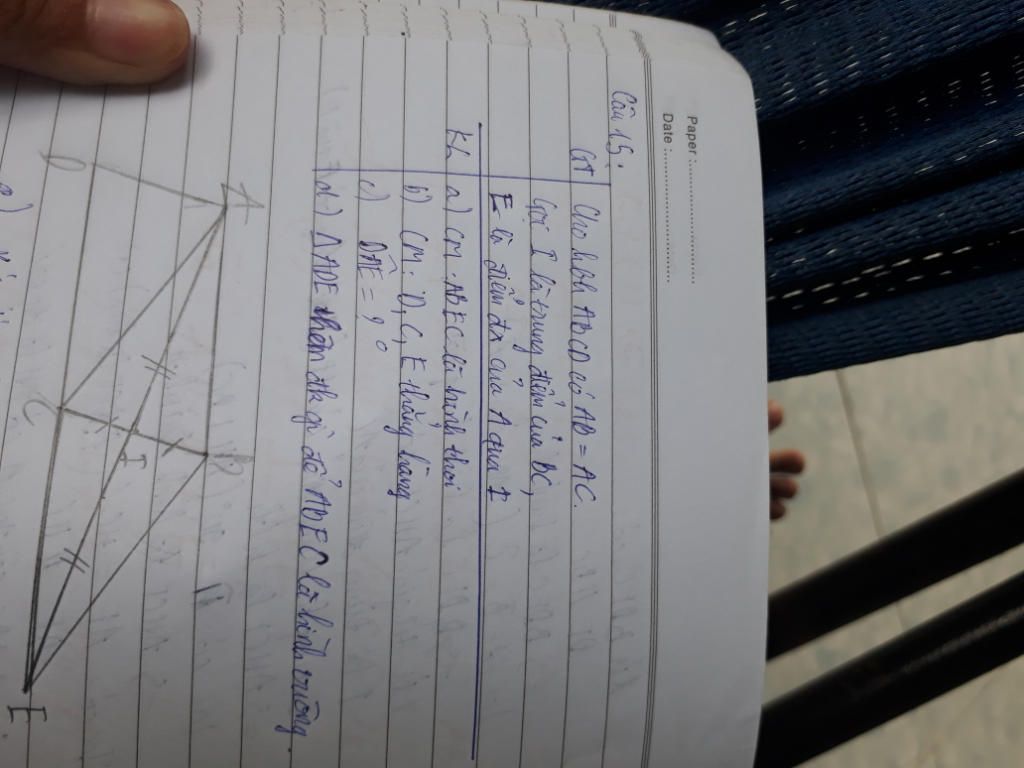 Paper
Date
Câu 15.
GT Cho hình ABCD có AB = AC.
Gọi I là trung điểm của BC,
E là điểm đx của A qua I
KL a) CM. ABEC là hình thoi
b) CM. D, C, E thẳng hàng
c) DAE = ?
d) ΔADE thêm đk gì để ABEC là hình vuông.
A
B
D
C
I
E
a)